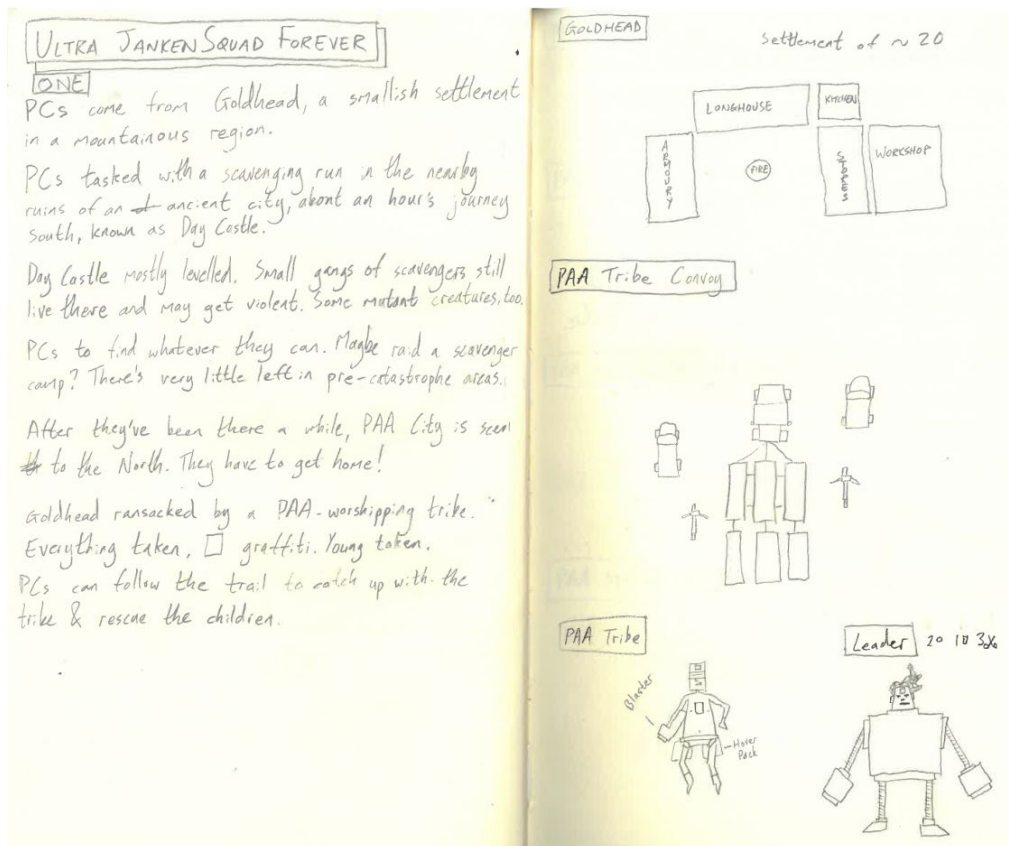 ULTRA JANKEN SQUAD FOREVER
ONE
PCs come from Goldhead, a smallish settlement
in a mountainous region.
PCs tasked with a scavenging run in the nearby
ruins of an ancient city, about an hour's journey
South, known as Day Castle.
Day Castle mostly levelled. Small gangs of scavengers still
live there and may get violent. Some mutant creatures, too.
PCs to find whatever they can. Maybe raid a scavenger
camp? There's very little left in pre-catastrophe areas.
After they've been there a while, PAA City is seen
to the North. They have to get home!
Goldhead ransacked by a PAA-worshipping tribe.
Everything taken, graffiti. Young taken.
PCs can follow the trail to catch up with the
tribe & rescue the children.
GOLDHEAD
Settlement of ~ 20
LONGHOUSE
KITCHEN
ARMOURY
FIRE
STORES
WORKSHOP
PAA Tribe Convoy
PAA Tribe
Blaster
Hover
Pack
Leader 20 10